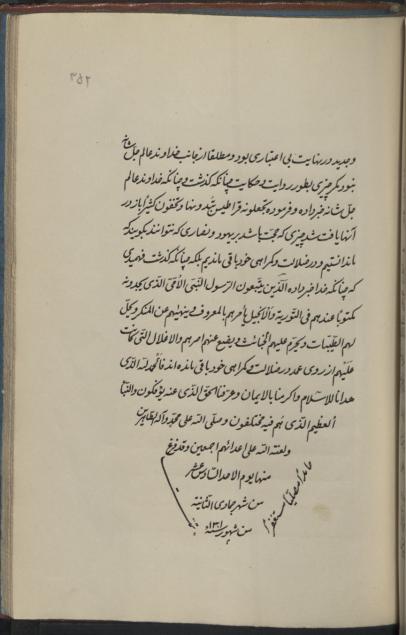 ۳۵۲
و جدید در نهایت بی اعتباری بود و مطلقا از جانب خداوند عالم جل شانه
نبود مگر چیزی بطور روایت و حکایت چنانکه گذشت و چنانکه خداوند عالم
جل شانه خبر داده و فرموده تجعلونه قراطیس تبدونها و تخفون کثیرا باز در
آنها یافت شد چیزی که حجت باشد بر یهود و نصاری که نتوانند بگویند که
ما ندانستیم و در ضلالت و گمراهی خود باقی ماندیم بلکه چنانکه گذشت فهمیدی
که چنانکه خدا خبر داده الذین یتبعون الرسول النبی الامی الذی یجدونه
مکتوبا عندهم فی التوریة و الانجیل یامرهم بالمعروف و ینهیهم عن المنکر و یحل
لهم الطیبات و یحرم علیهم الخبائث و یضع عنهم اصرهم و الاغلال التی کانت
علیهم از روی عمد در ضلالت و گمراهی خود باقی مانده اند فالحمد لله الذی
هدانا للاسلام و اکرمنا بالایمان و عرفنا الحق الذی عنه یؤفکون و النبأ
العظیم الذی هم فیه مختلفون و صلی الله علی محمد و آله الطاهرین
و لعنة الله علی اعدائهم اجمعین و قد فرغ
منها یوم الاحد السادس عشر
من شهر جمادی الثانیه
من شهور سنه ۱۳۱
حامدا مصلیا مستغفرا